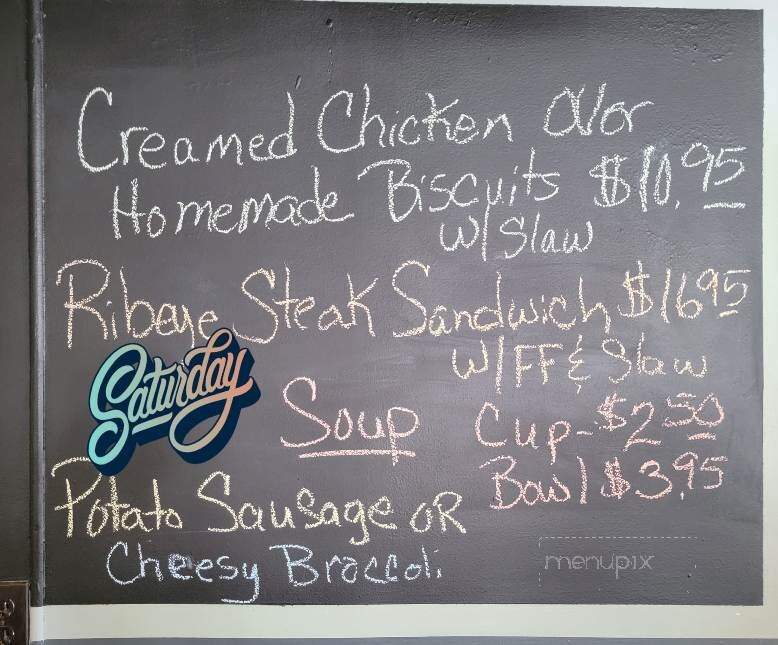 Creamed Chicken Over
Homemade Biscuits $10.95
w/Slaw
Ribeye Steak Sandwich $16 95
w/FF & Slaw
Saturday
Soup Cup-$2 50
Bowl $3.95
Potato Sausage OR
Cheesy Broccoli
menupix